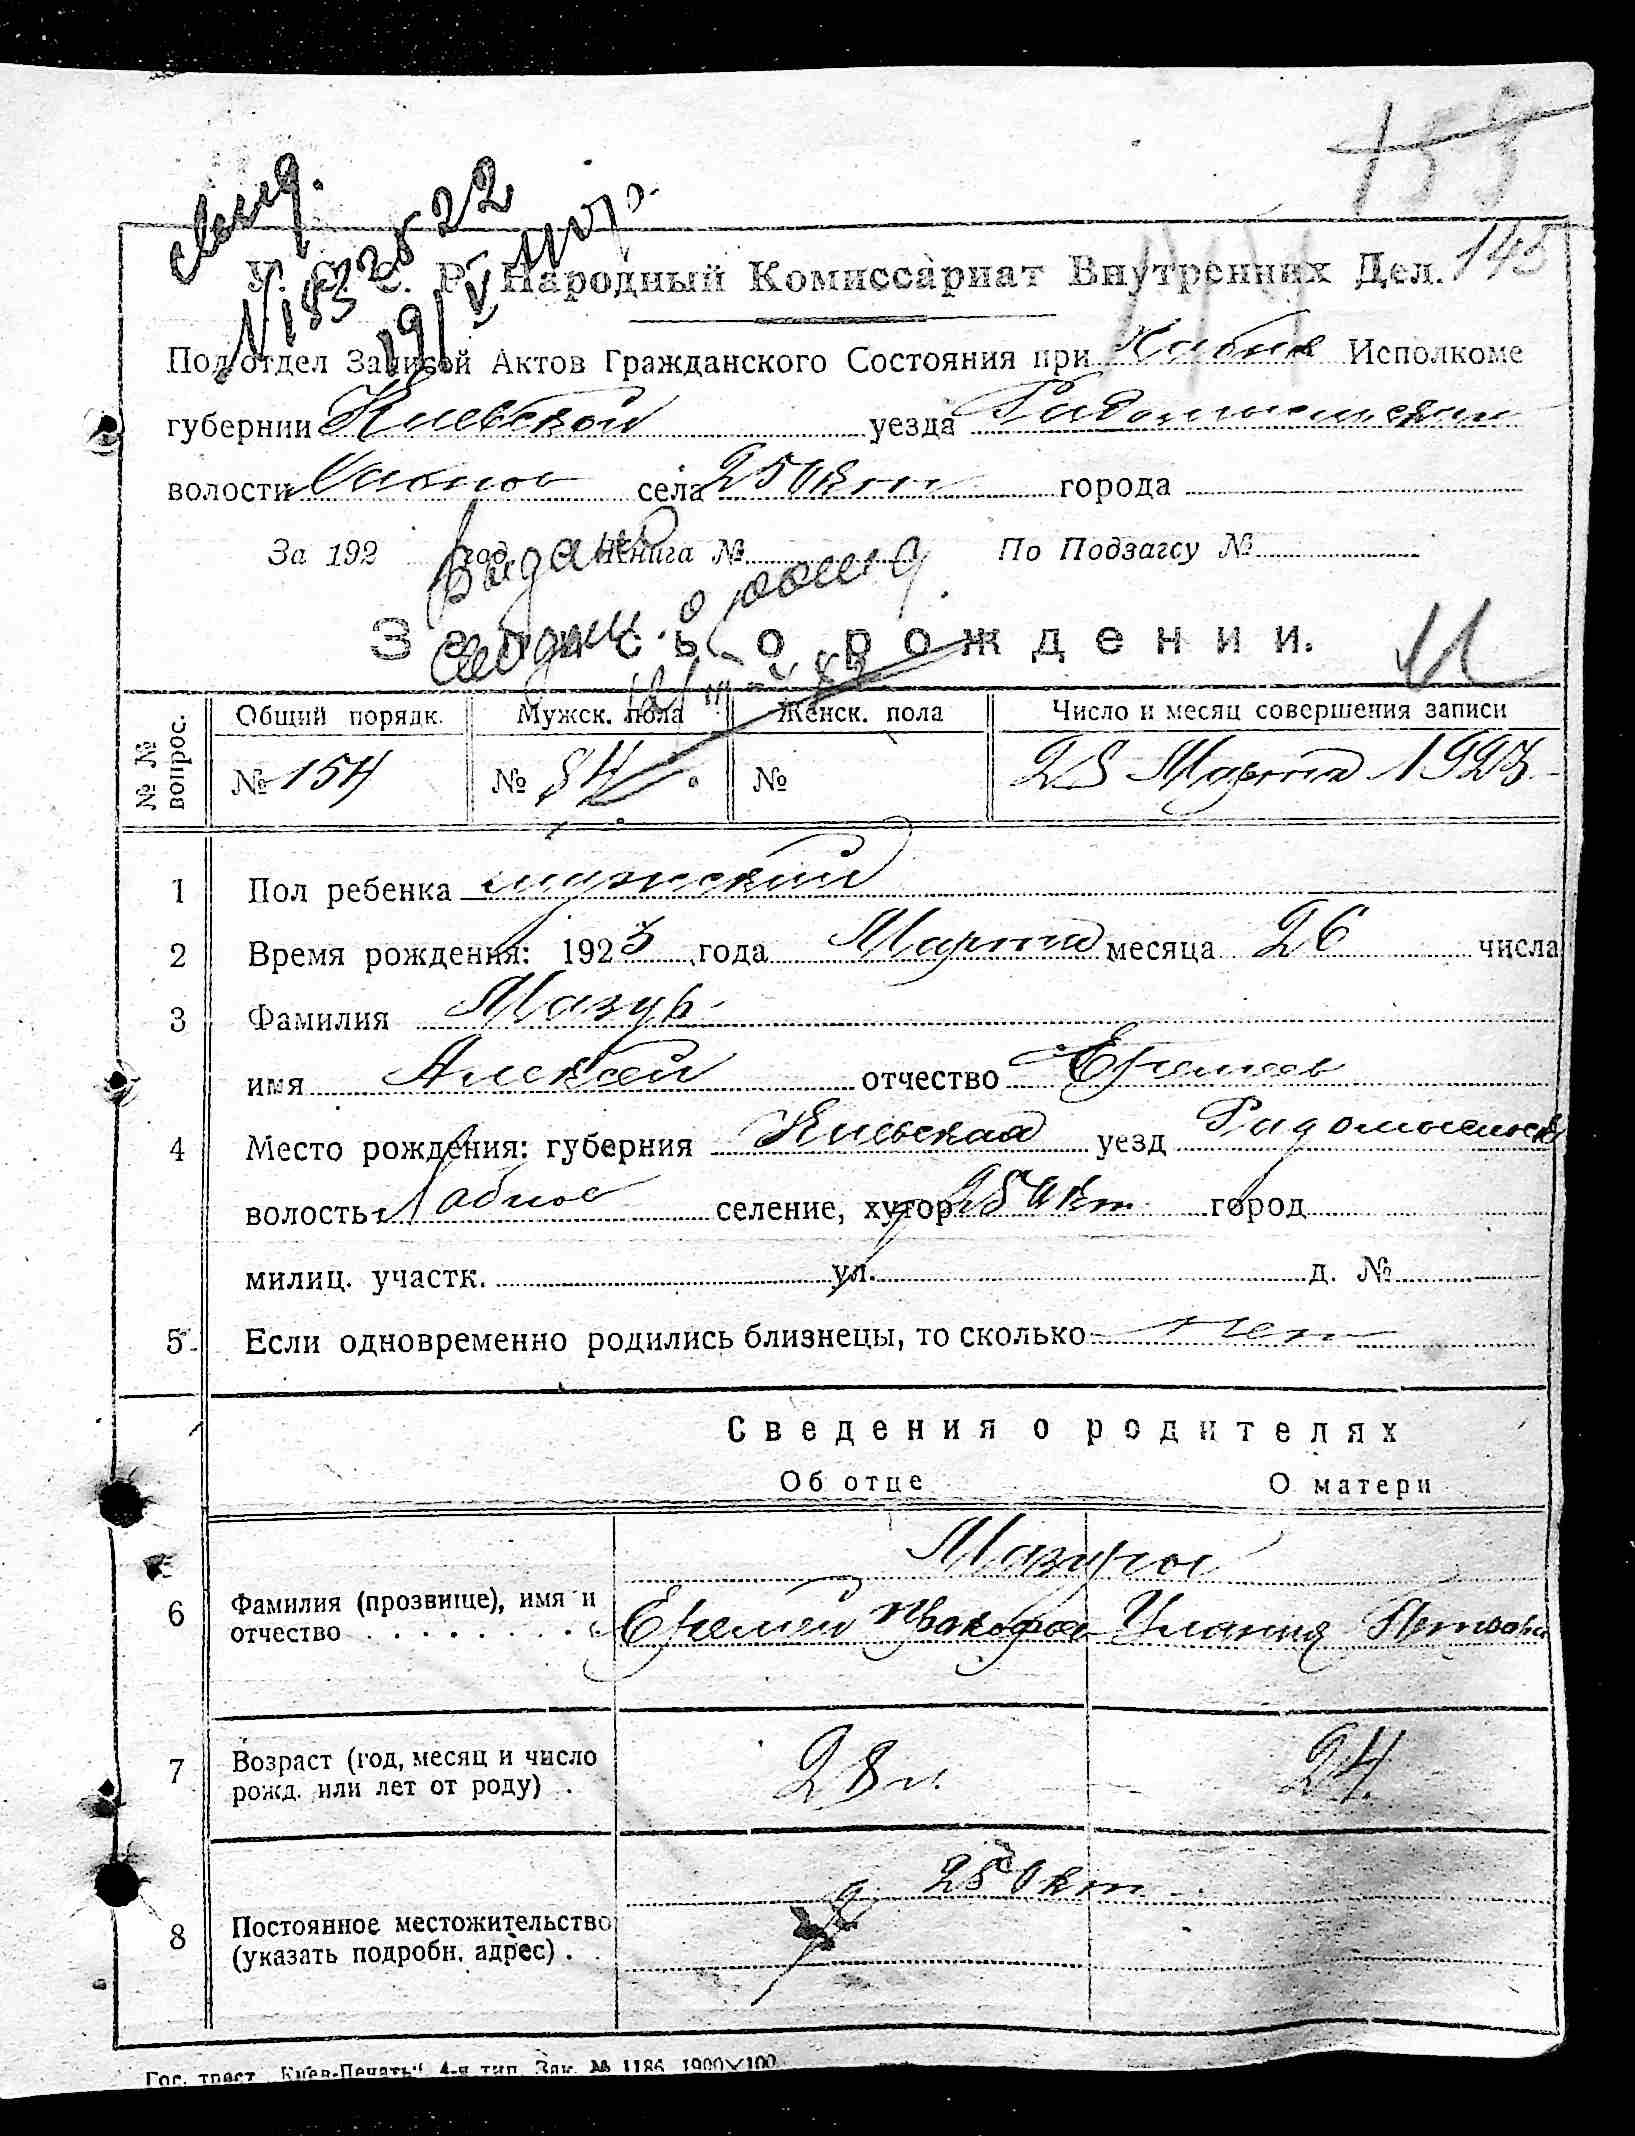 155
свид.
№ 1832522
19/V
У. С. С. Р. Народный Комиссариат Внутренних Дел. 145
Подотдел Записей Актов Гражданского Состояния при Исполкоме
губернии Киевской уезда Радомысльском
волости села города
За 192 год. Книга № По Подзагсу №
Выдано
свидет. о рожд.
Запись о рождении.
№№ вопрос. Общий порядк. Мужск. пола Женск. пола Число и месяц совершения записи
№ 154 № 84 № 28 Марта 1923
1 Пол ребенка мужский
2 Время рождения: 1923 года Марта месяца 26 числа
3 Фамилия Мазур
имя Алексей отчество Еремеев
4 Место рождения: губерния Киевская уезд Радомысльск
волость селение, хутор город
милиц. участк. ул. д. №
5 Если одновременно родились близнецы, то сколько нет
Сведения о родителях
Об отце О матери
Мазуры
6 Фамилия (прозвище), имя и
отчество . . . . . . . . Еремей Прокофов Улания Петровн
7 Возраст (год, месяц и число
рожд. или лет от роду) . 28 л. 24.
8 Постоянное местожительство
(указать подробн. адрес) . .
Гос. трест „Киев-Печать“ 4-я тип. Зак. № 1186 1900×100